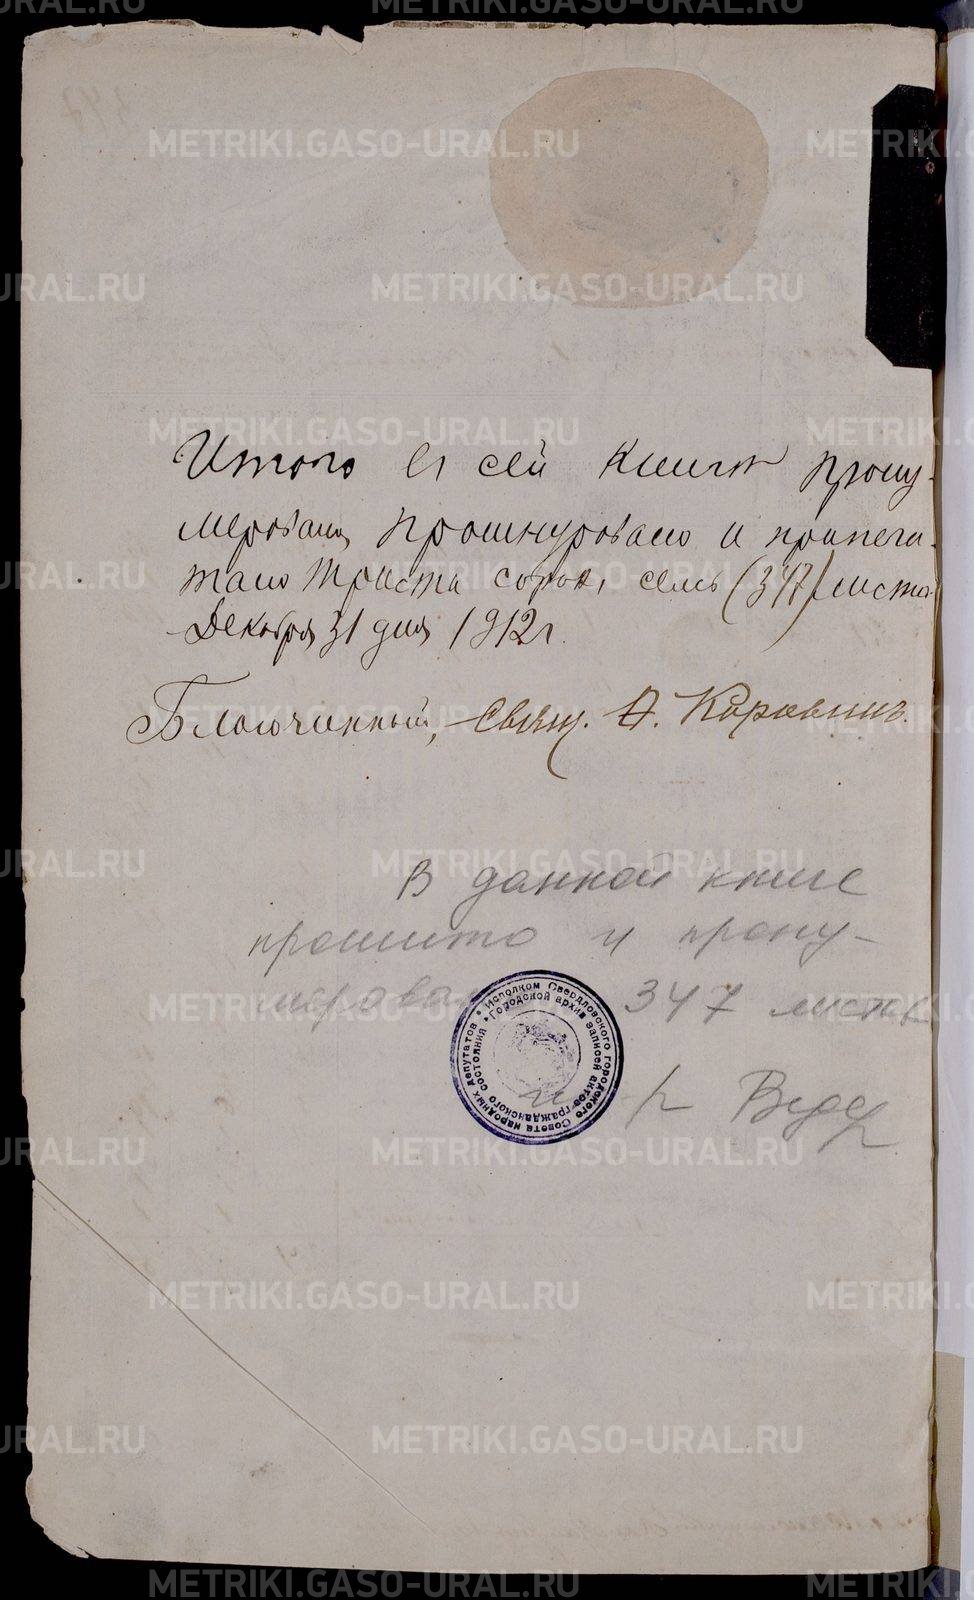 Итого въ сей книгѣ прону-
меровано, прошнуровано и припеча-
тано триста сорокъ семь (347) листа.
Декабря 31 дня 1912 г.
Благочинный, свящ. А. Коровинъ.
В данной книге
прошито и прону-
мерован 347 листа
Исполком Свердловского городского Совета народных депутатов
Городской архив записей актов гражданского состояния
METRIKI.GASO-URAL.RU